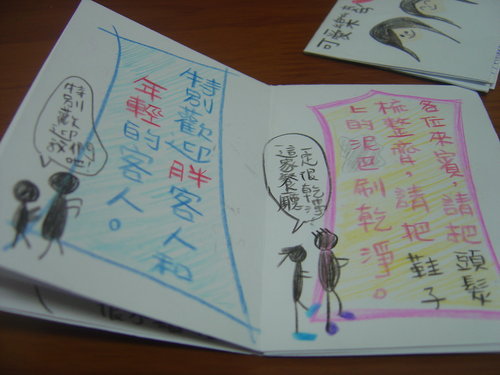 特別歡迎胖客人和
年輕的客人。
特別
歡迎
各位來賓，請把頭髮
梳整齊，請把鞋子
上的泥巴刷乾淨。
一定很乾淨
這家餐廳
可愛樂